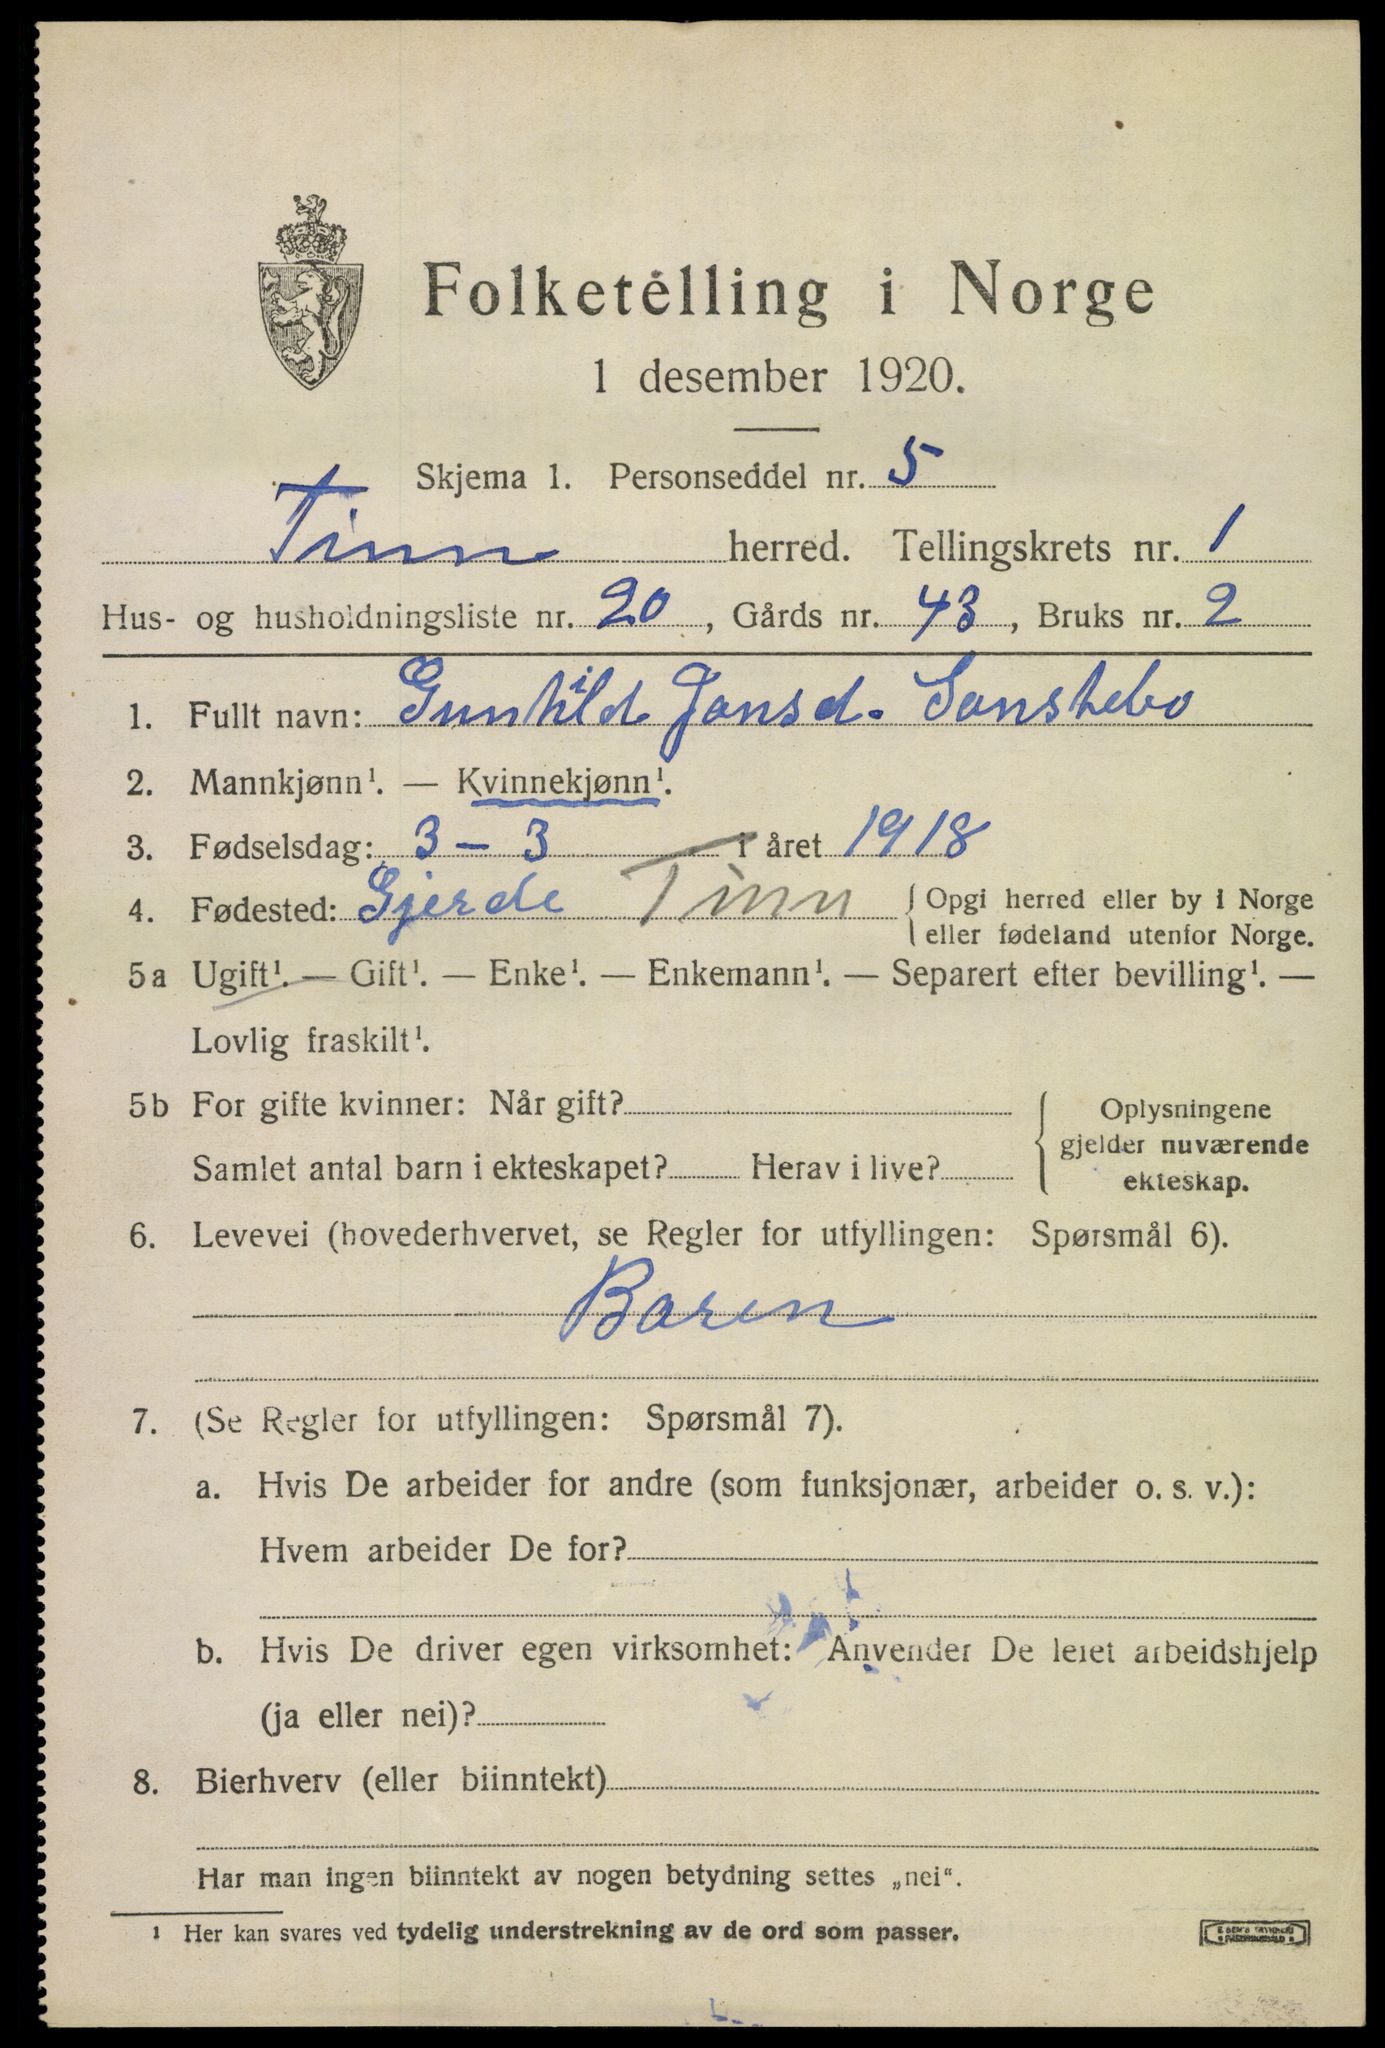 Folketelling i Norge
1 desember 1920.
Skjema 1. Personseddel nr. 5
Tinn herred. Tellingskrets nr. 1
Hus- og husholdningsliste nr. 20, Gårds nr. 43, Bruks nr. 2
1. Fullt navn: Gunhild Jansd. Sanstebø
2. Mannkjønn¹. — Kvinnekjønn¹.
3. Fødselsdag: 3 – 3 i året 1918
4. Fødested: Gjerde Tinn { Opgi herred eller by i Norge
eller fødeland utenfor Norge.
5a Ugift¹. — Gift¹. — Enke¹. — Enkemann¹. — Separert efter bevilling¹. —
Lovlig fraskilt¹.
5b For gifte kvinner: Når gift?
Samlet antal barn i ekteskapet? Herav i live?
{ Oplysningene
gjelder nuværende
ekteskap.
6. Levevei (hovederhvervet, se Regler for utfyllingen: Spørsmål 6).
Baren
7. (Se Regler for utfyllingen: Spørsmål 7).
a. Hvis De arbeider for andre (som funksjonær, arbeider o. s. v.):
Hvem arbeider De for?
b. Hvis De driver egen virksomhet: Anvender De leiet arbeidshjelp
(ja eller nei)?
8. Bierhverv (eller biinntekt)
Har man ingen biinntekt av nogen betydning settes „nei“.
¹ Her kan svares ved tydelig understrekning av de ord som passer.